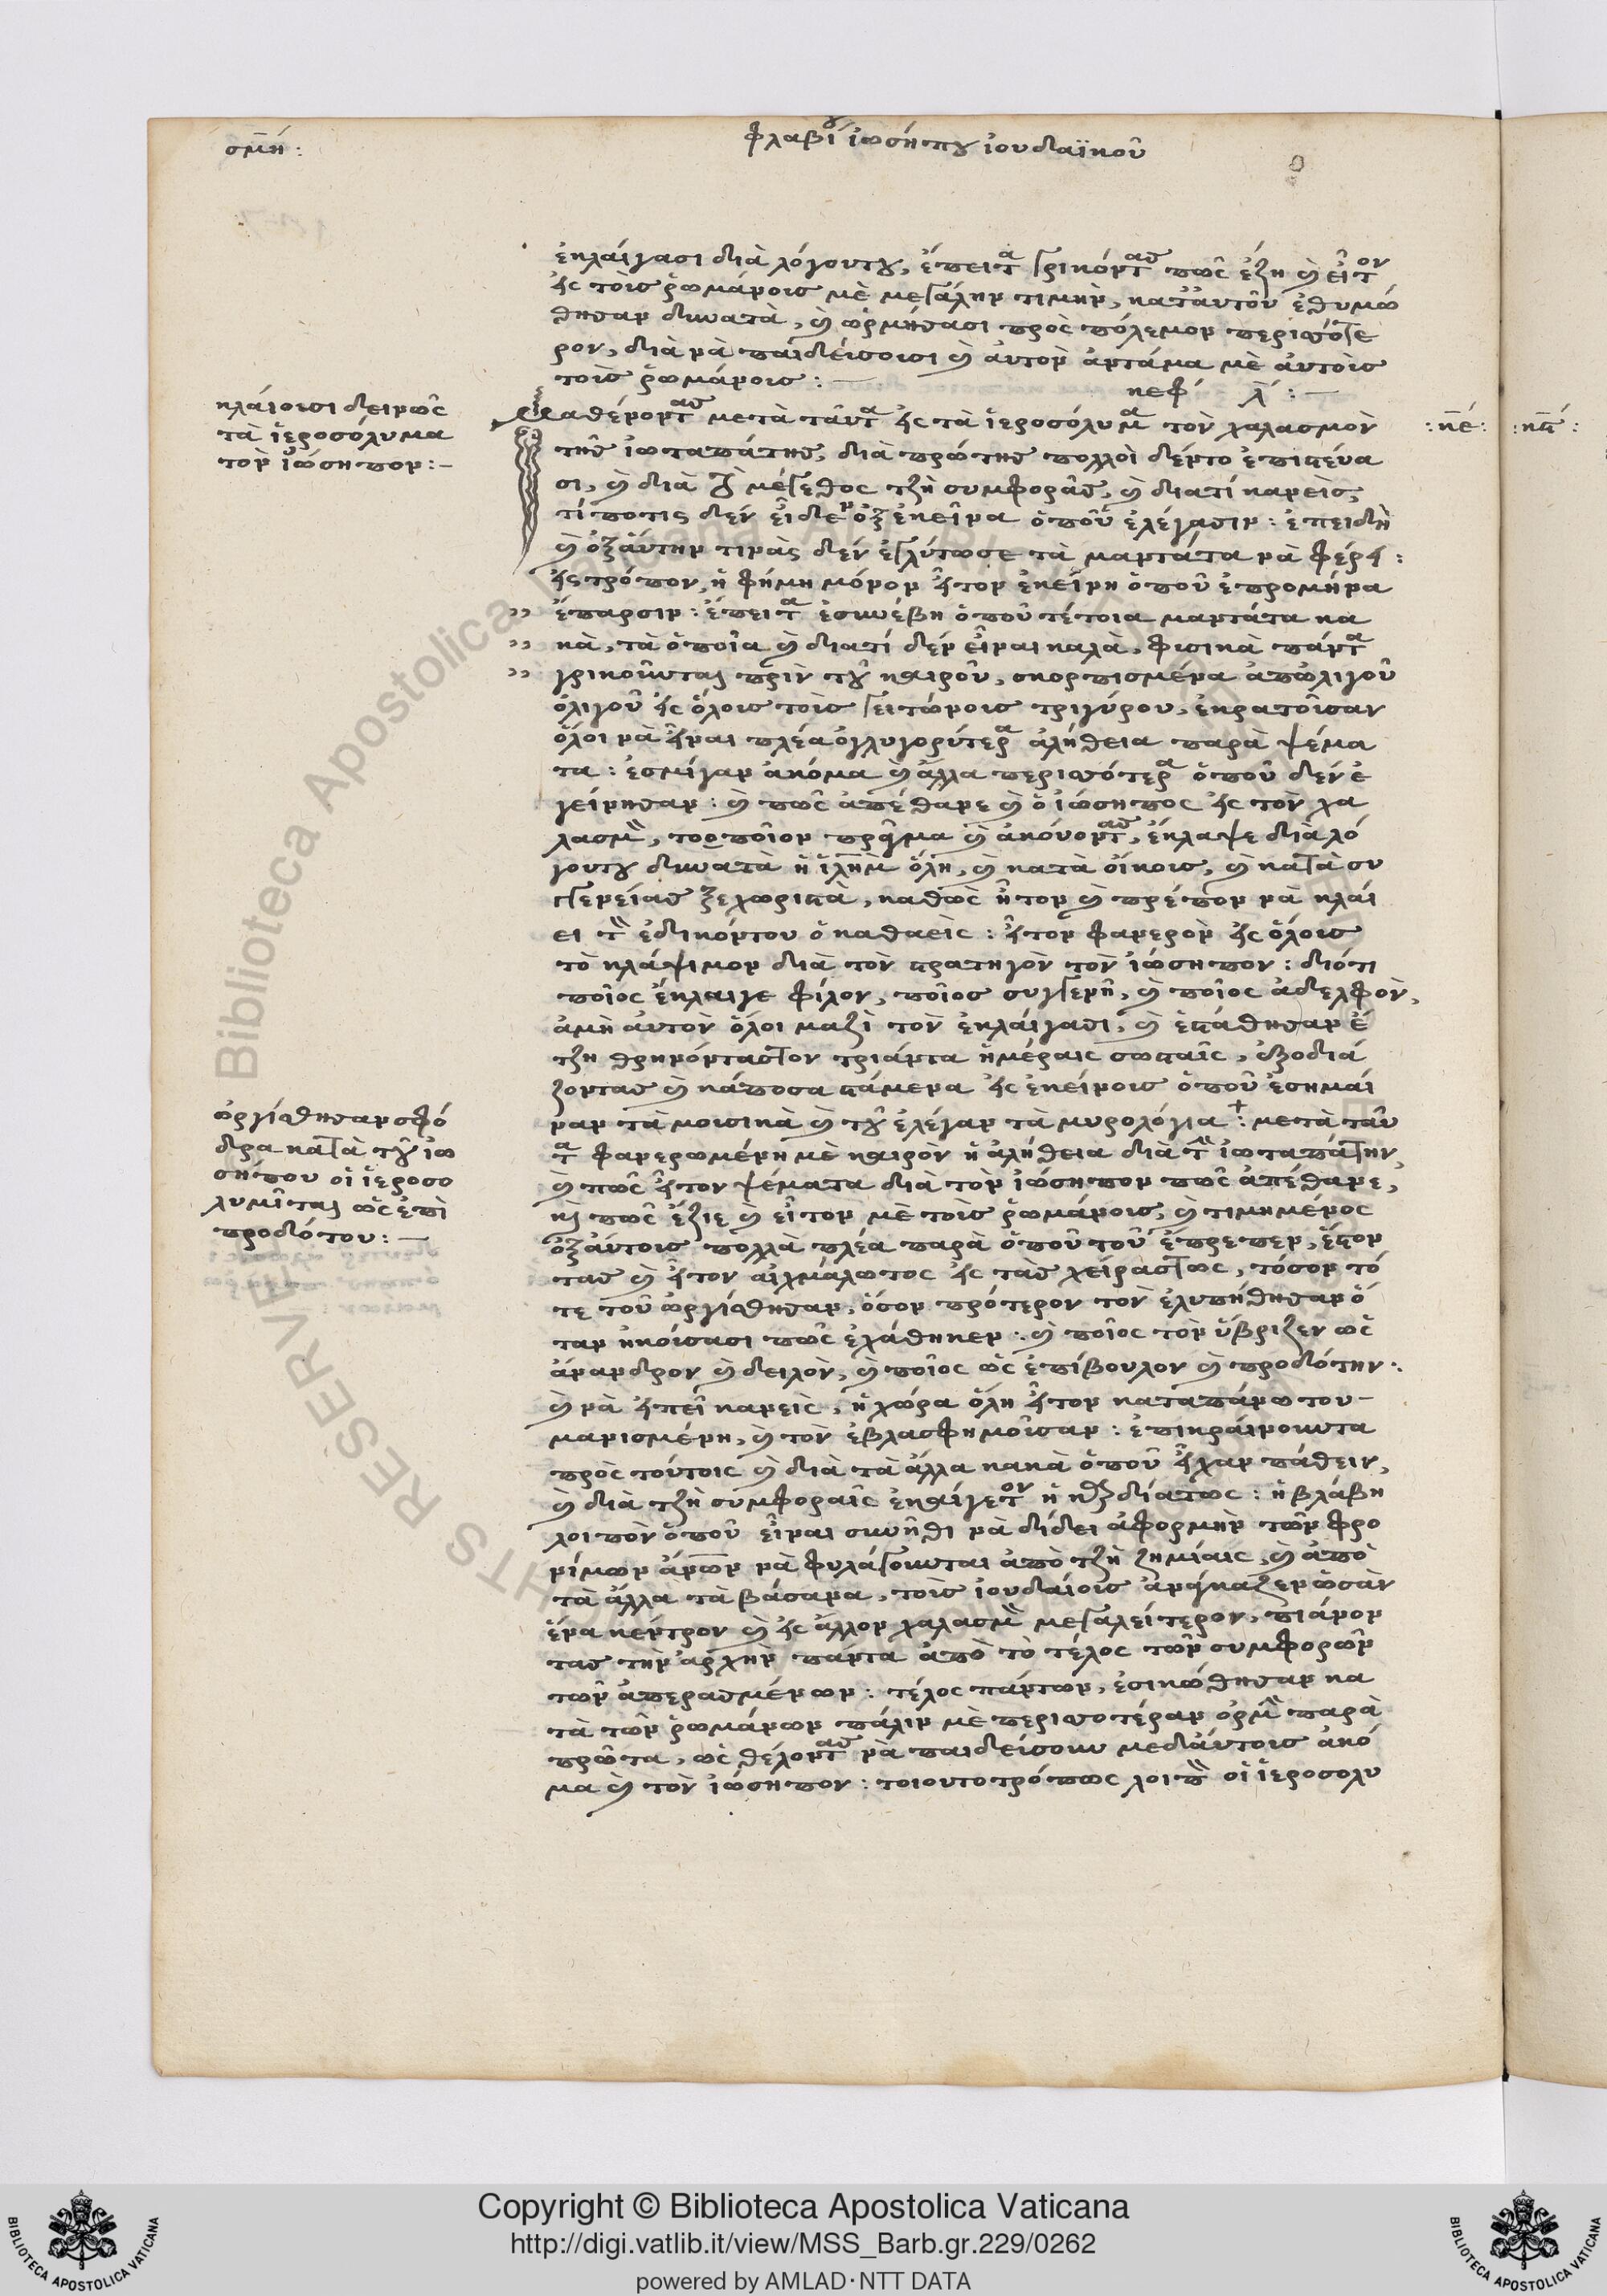 σμη:
φλαβίου ἰωσήπου ἰουδαϊκοῦ
ἐκλαίγασι διὰ λόγουτου, ἔπειτα γρικόντας πῶς ἔζη καὶ εἶτον
εἰς τοὺς ῥωμάνους μὲ μεγάλην τιμὴν, κατ' αὐτοῦ ἐθυμώ
θησαν δυνατὰ, καὶ ὡρμήθασι πρὸς πόλεμον περισσότε
ρον, διὰ νὰ παιδεύσουσι καὶ αὐτὸν ἀντάμα μὲ αὐτοὺς
τοὺς ῥωμάνους: —
κεφ λ: —
κλαίουσι δεινῶς
τὰ ἱεροσόλυμα
τὸν ἰώσηπον: —
Μαθένοντας μετὰ ταῦτα εἰς τὰ ἱεροσόλυμα τὸν χαλασμὸν
:κε: :κς:
τῆς ἰωταπάτης, διὰ πρώτης πολλοὶ δέντο ἐπιστεύα
σι, καὶ διὰ τὸ μέγεθος τζῆ συμφορᾶς, καὶ διατί κανεὶς
τίποτις δὲν εἶδεν ὀξ ἐκεῖνα ὁποῦ ἐλέγασιν: ἐπειδὴ
καὶ ὀξ αὔτην τινὰς δὲν ἐγλύτωσε τὰ μαντάτα νὰ φέρει:
εἰς τρόπον, ἡ φήμη μόνον ἦτον ἐκείνη ὁποῦ ἐπρομήνα
ἔπαρσιν: ἔπειτα ἐσυνέβη ὁποῦ τέτοια μαντάτα κα
κὰ, τὰ ὁποῖα καὶ διατί δὲν εἶναι καλὰ, φυσικὰ πάντα
γρικοῦνται πρὶν τοῦ καιροῦ, σκορπισμένα ἀπ' ὀλιγοῦ
ὀλιγοῦ εἰς ὅλους τοὺς γειτώνους τριγύρου, ἐκρατοῦσαν
ὅλοι νὰ εἶναι πλέα ὀγλυγορύτερα ἀλήθεια παρὰ ψέμα
τα: ἐσμίγαν ἀκόμα καὶ ἄλλα περισσότερα ὁποῦ δὲν ἐ
γείνησαν: καὶ πῶς ἀπέθανε καὶ ὁ ἰώσηπος εἰς τὸν χα
λασμὸν, τοοποῖον πρᾶγμα καὶ ἀκούοντας, ἔκλαψε διὰ λό
γουτου δυνατὰ ἡ ἱλημ ὅλη, καὶ κατὰ οἴκους, καὶ κατὰ συ
γγενείας ξεχωριστὰ, καθὼς ἦτον καὶ πρέπον νὰ κλαί
ει τὸν ἐδικόντου ὁ καθαεὶς: ἦτον φανερὸν εἰς ὅλους
τὸ κλάψιμον διὰ τὸν στρατηγὸν τὸν ἰώσηπον: διότι
ποῖος ἔκλαιγε φίλον, ποῖος συγγενῆ, καὶ ποῖος ἀδελφὸν,
ἀμὴ αὐτὸν ὅλοι μαζὶ τὸν ἐκλαίγασι, καὶ ἐστάθησαν ἔ
τζη θρηνόντας τον τριάντα ἡμέραις σωσταῖς, ἐξοδιά
ζοντας καὶ κάποσα στάμενα εἰς ἐκείνους ὁποῦ ἐσημαί
ναν τὰ μουσικὰ καὶ τοῦ ἐλέγαν τὰ μυρολόγια +: μετὰ ταῦ
τα φανερωμένη μὲ καιρὸν ἡ ἀλήθεια διὰ τὴν ἰωταπάτην,
καὶ πῶς ἦτον ψέματα διὰ τὸν ἰώσηπον πῶς ἀπέθανε,
καὶ πῶς ἔζιε καὶ εἶτον μὲ τοὺς ῥωμάνους, καὶ τιμημένος
ὀξ αὔτους πολλὰ πλέα παρὰ ὁποῦ τοῦ ἔπρεπεν, ἔστον
τας καὶ ἦτον αἰχμάλωτος εἰς τὰς χείρας τως, τόσον τό
τε τοῦ ὠργίσθησαν, ὅσον πρότερον τὸν ἐλυπήθησαν ὅ
ταν ἠκούσασι πῶς ἐχάθηκεν: καὶ ποῖος τὸν ὕβριζεν ὡς
ἄνανδρον καὶ δειλὸν, καὶ ποῖος ὡς ἐπίβουλον καὶ προδότην:
καὶ νὰ εἰπεῖ κανεὶς, ἡ χώρα ὅλη ἦτον καταπάνω του
μανισμένη, καὶ τὸν ἐβλασφημοῦσαν: ἐπικραίνουντα
πρὸς τούτοις καὶ διὰ τὰ ἄλλα κακὰ ὁποῦ εἶχαν πάθειν,
καὶ διὰ τζῆ συμφοραῖς ἐκαίγετον ἡ καρδίατως: ἡ βλάβη
λοιπὸν ὁποῦ εἶναι συνῆθι νὰ δίδει ἀφορμὴν τῶν φρο
νίμων ἀνῶν νὰ φυλάγουνται ἀπὸ τζῆ ζημίαις, καὶ ἀπὸ
τὰ ἄλλα τὰ βάσανα, τοὺς ἰουδαίους ἀνάγκαζεν ὡσὰν
ἕνα κέντρον καὶ εἰς ἄλλον χαλασμὸν μεγαλείτερον, πιάνον
τας τὴν ἀρχὴν πάντα ἀπὸ τὸ τέλος τῶν συμφορῶν
τῶν ἀπερασμένων: τέλος πάντων, ἐσικώθησαν κα
τὰ τῶν ῥωμάνων πάλιν μὲ περισσοτέραν ὁρμὴν παρὰ
πρῶτα, ὡς θέλοντας νὰ παιδεύσουν μεδαύτους ἀκό
μα καὶ τὸν ἰώσηπον: τοιουτοτρόπως λοιπὸν οἱ ἱεροσολυ
ὠργίσθησαν σφό
δρα κατὰ τοῦ ἰω
σήπου οἱ ἱεροσο
λυμῖται ὡς ἐπὶ
προδότου: —
Copyright © Biblioteca Apostolica Vaticana
http://digi.vatlib.it/view/MSS_Barb.gr.229/0262
powered by AMLAD·NTT DATA
BIBLIOTECA APOSTOLICA VATICANA
BIBLIOTECA APOSTOLICA VATICANA